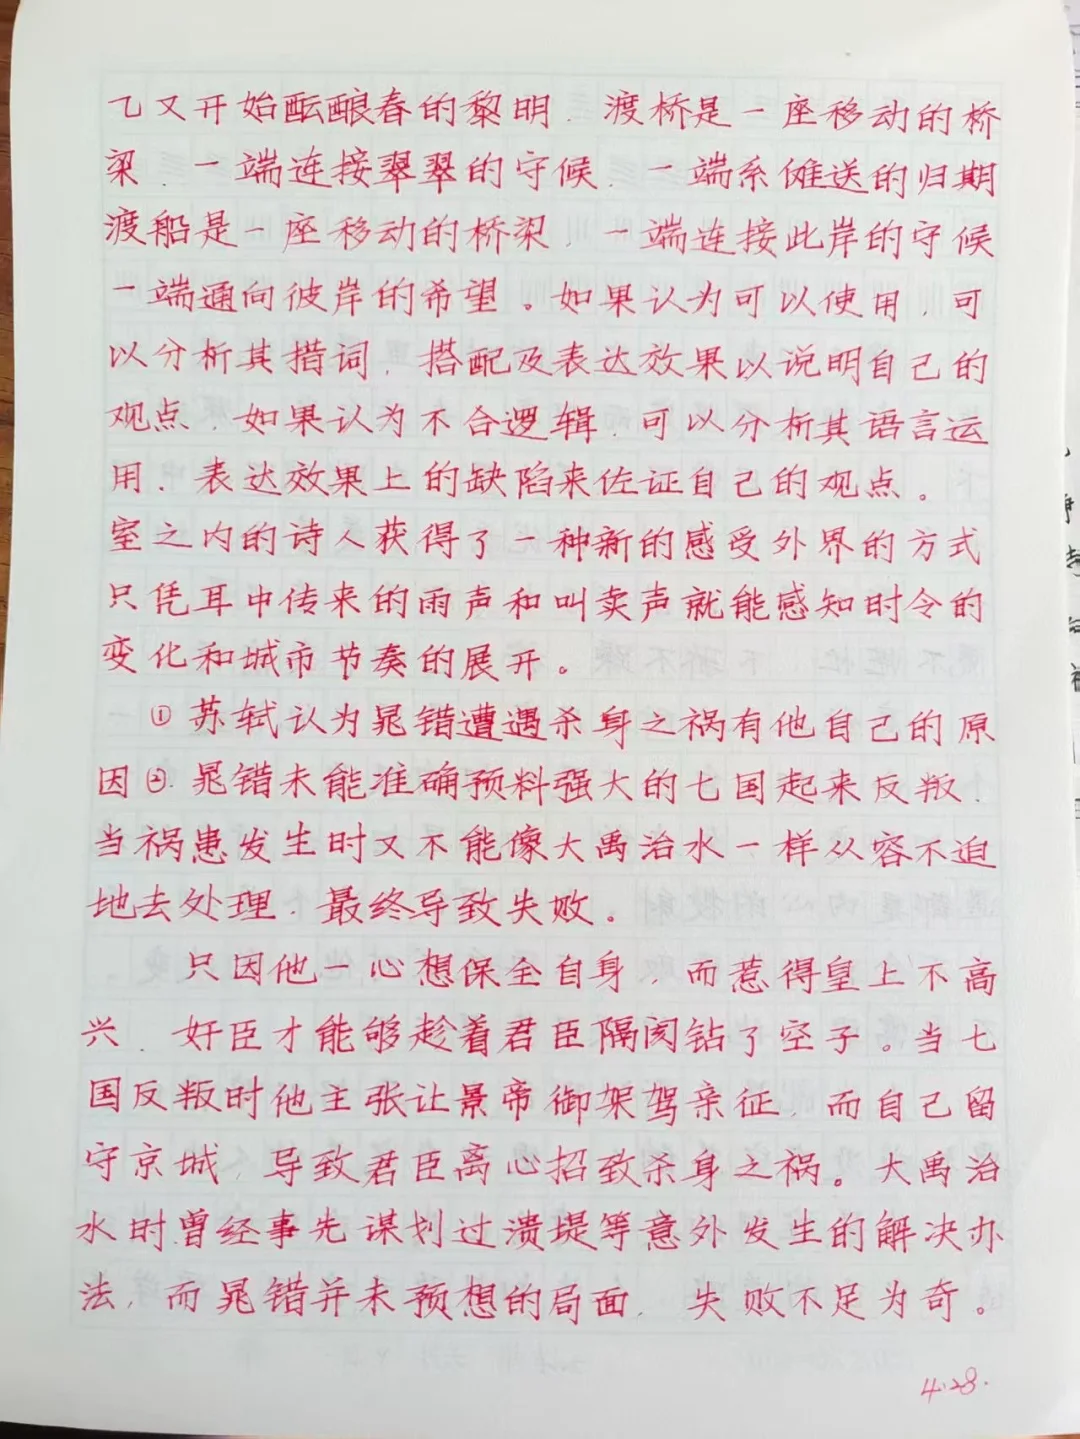 乙又开始酝酿春的黎明．渡桥是一座移动的桥
梁．一端连接翠翠的守候．一端系傩送的归期
渡船是一座移动的桥梁．一端连接此岸的守候
一端通向彼岸的希望。如果认为可以使用．可
以分析其措词．搭配及表达效果以说明自己的
观点．如果认为不合逻辑．可以分析其语言运
用．表达效果上的缺陷来佐证自己的观点。
室之内的诗人获得了一种新的感受外界的方式
只凭耳中传来的雨声和叫卖声就能感知时令的
变化和城市节奏的展开。
①苏轼认为晁错遭遇杀身之祸有他自己的原
因②.晁错未能准确预料强大的七国起来反叛．
当祸患发生时又不能像大禹治水一样从容不迫
地去处理．最终导致失败。
只因他一心想保全自身，而惹得皇上不高
兴．奸臣才能够趁着君臣隔阂钻了空子。当七
国反叛时他主张让景帝御驾亲征．而自己留
守京城，导致君臣离心招致杀身之祸。大禹治
水时曾经事先谋划过溃堤等意外发生的解决办
法．而晁错并未预想的局面．失败不足为奇。
4.28.